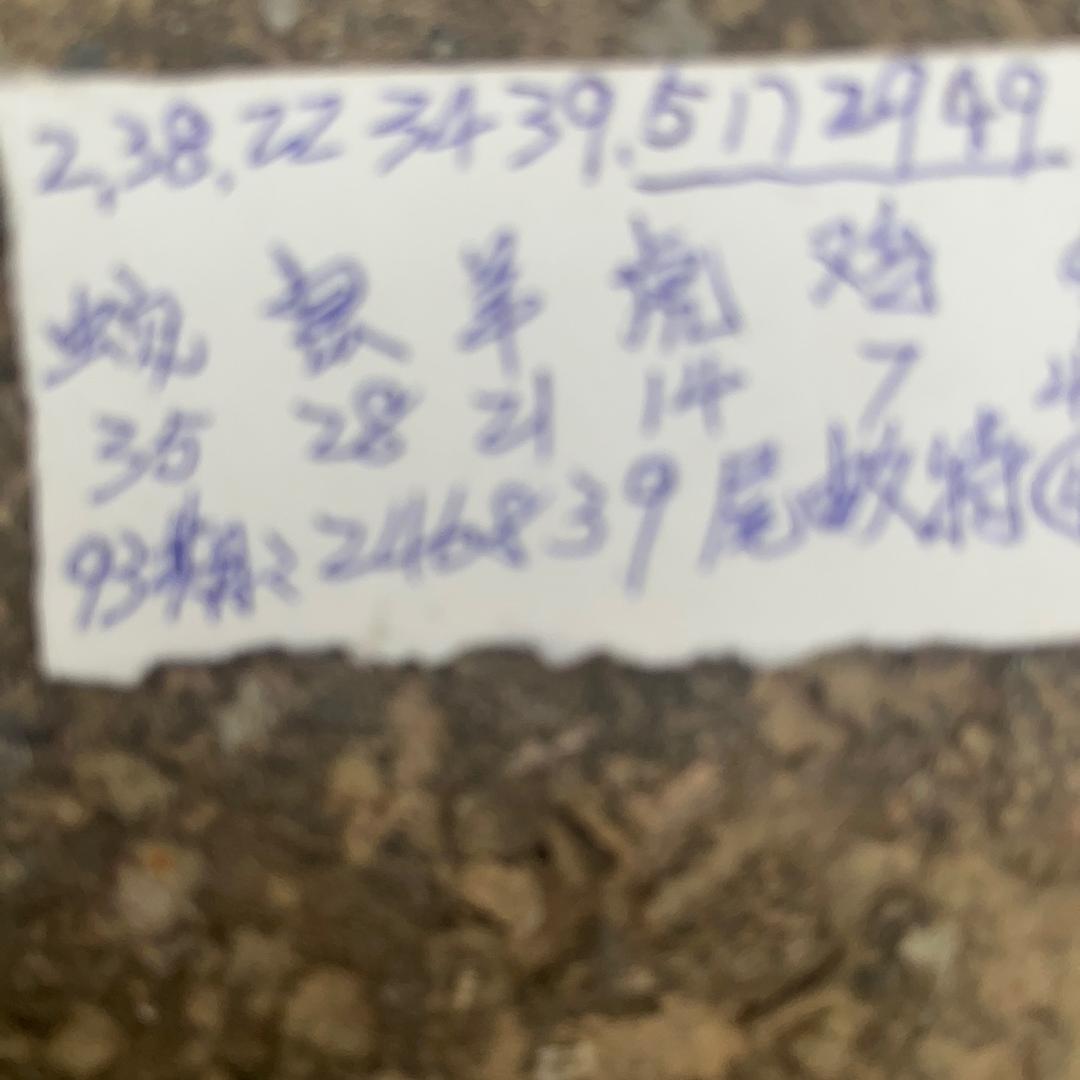 2,38,22 34 39.5 17 29 49
蛇 鼠 羊 虎 鸡
35 28 21 14 7
93期:246839尾蚊特